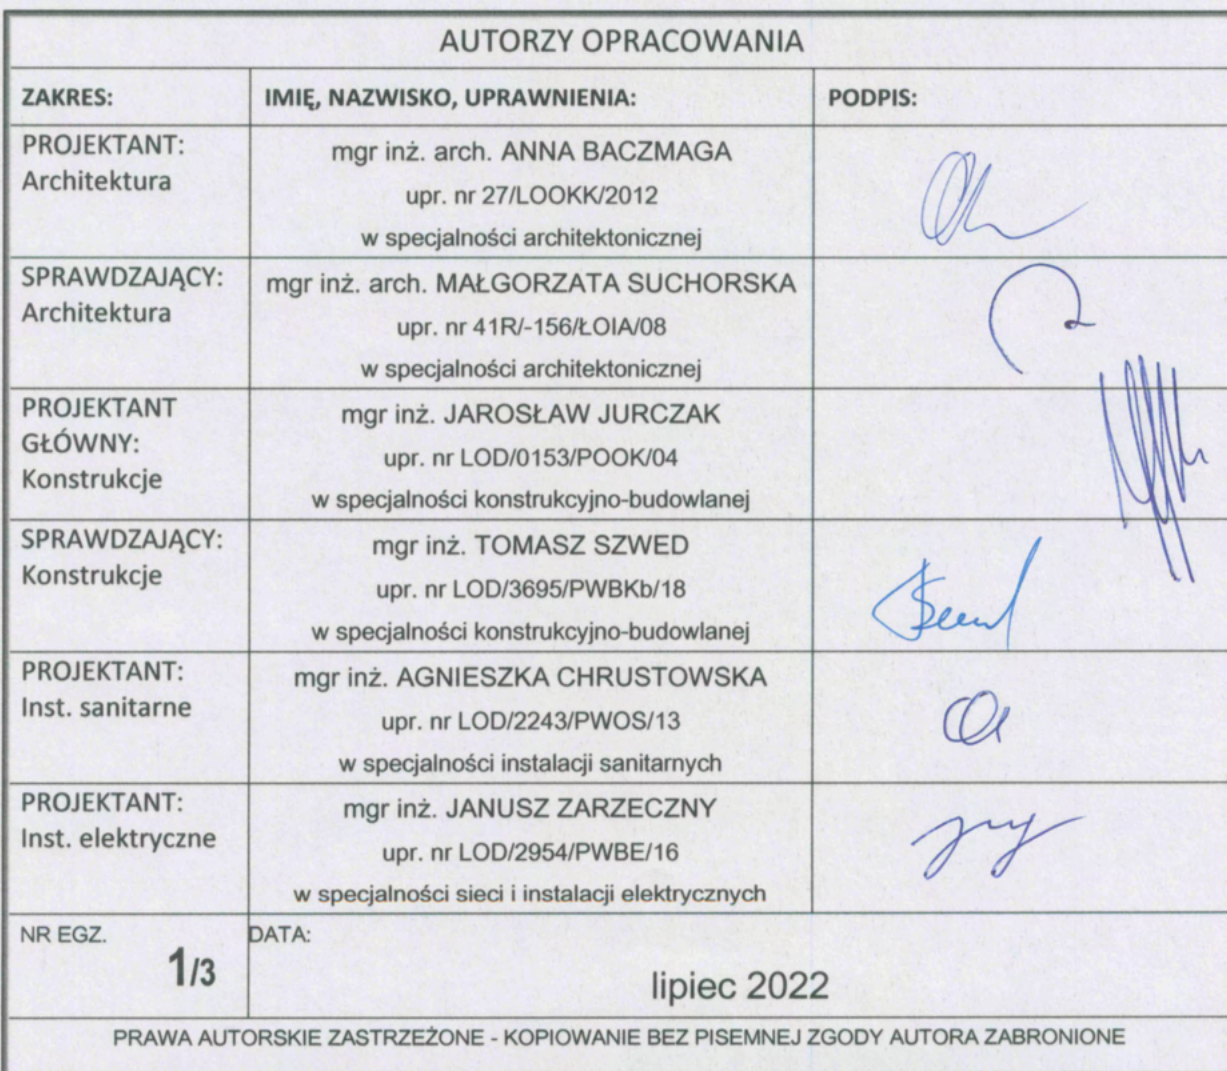 AUTORZY OPRACOWANIA
ZAKRES: IMIĘ, NAZWISKO, UPRAWNIENIA: PODPIS:
PROJEKTANT:
Architektura
mgr inż. arch. ANNA BACZMAGA
upr. nr 27/LOOKK/2012
w specjalności architektonicznej
SPRAWDZAJĄCY:
Architektura
mgr inż. arch. MAŁGORZATA SUCHORSKA
upr. nr 41R/-156/ŁOIA/08
w specjalności architektonicznej
PROJEKTANT
GŁÓWNY:
Konstrukcje
mgr inż. JAROSŁAW JURCZAK
upr. nr LOD/0153/POOK/04
w specjalności konstrukcyjno-budowlanej
SPRAWDZAJĄCY:
Konstrukcje
mgr inż. TOMASZ SZWED
upr. nr LOD/3695/PWBKb/18
w specjalności konstrukcyjno-budowlanej
PROJEKTANT:
Inst. sanitarne
mgr inż. AGNIESZKA CHRUSTOWSKA
upr. nr LOD/2243/PWOS/13
w specjalności instalacji sanitarnych
PROJEKTANT:
Inst. elektryczne
mgr inż. JANUSZ ZARZECZNY
upr. nr LOD/2954/PWBE/16
w specjalności sieci i instalacji elektrycznych
NR EGZ.
1/3
DATA:
lipiec 2022
PRAWA AUTORSKIE ZASTRZEŻONE - KOPIOWANIE BEZ PISEMNEJ ZGODY AUTORA ZABRONIONE